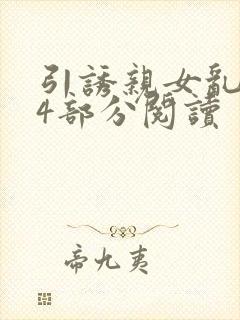 引誘親女亂
4部分閱讀
帝九夷